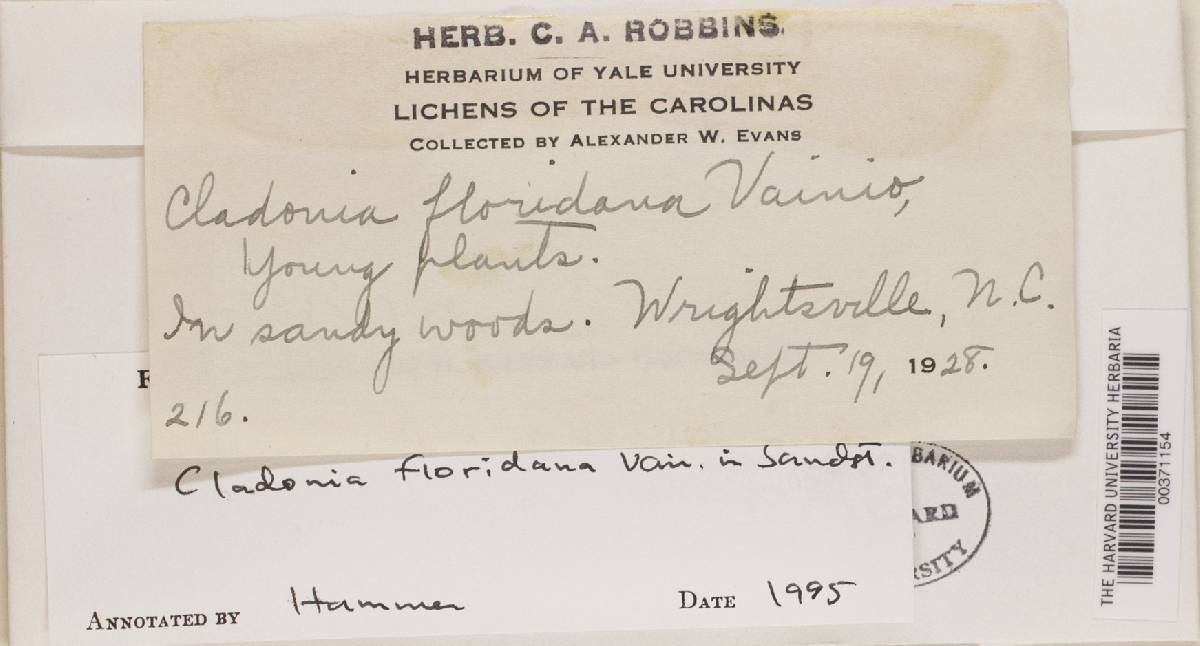 HERB. C. A. ROBBINS.
HERBARIUM OF YALE UNIVERSITY
LICHENS OF THE CAROLINAS
COLLECTED BY ALEXANDER W. EVANS
Cladonia floridana Vainio,
Young plants.
In sandy woods. Wrightsville, N.C.
Sept. 19, 1928.
216.
Cladonia floridana Vain. in Sandst.
ANNOTATED BY Hammer DATE 1995
THE HARVARD UNIVERSITY HERBARIA
00371154